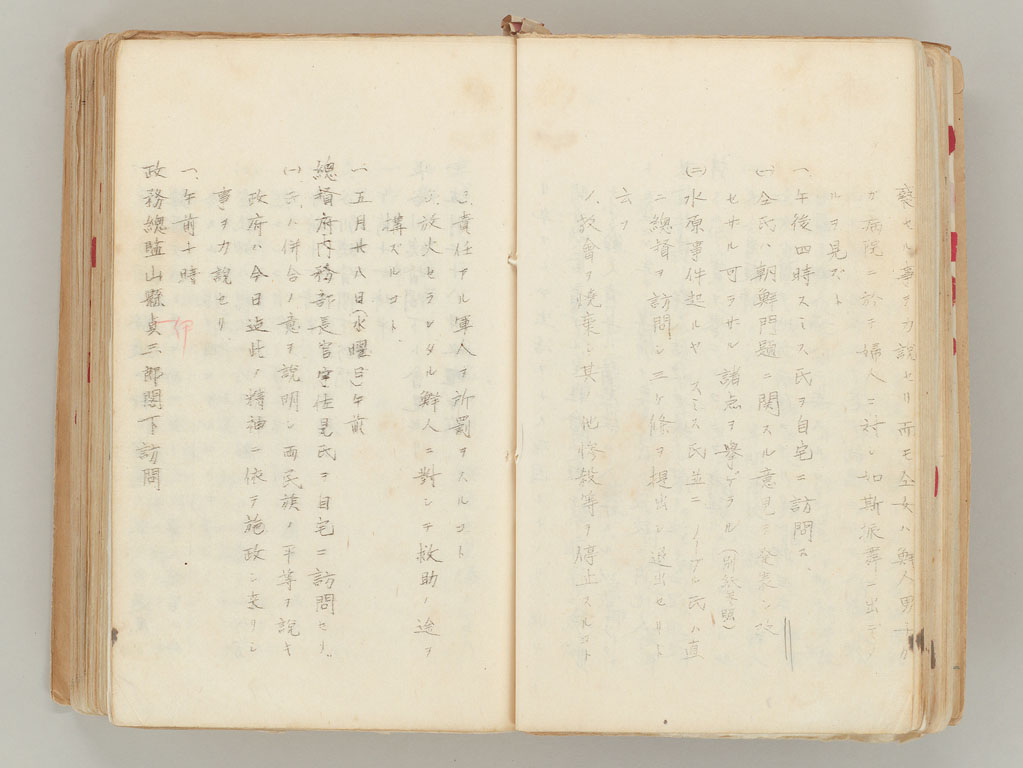 察セル事ヲ力説セリ而モ仝女ハ鮮人男子ガ
病院ニ於テ婦人ニ対シ如斯派ニ出デタ
ルヲ見ズト
一、午後四時スミス氏ヲ自宅ニ訪問ス、
(一)仝氏ハ朝鮮問題ニ関スル意見ヲ発表シ改
セザル可ラザル諸点ヲ挙ゲラル(前記参照)
(二)水原事件起ルヤスミス氏並ニノーブル氏ハ直
ニ總督ヲ訪問シ三ケ條ヲ提出シ退出セリト
云フ
教會ヲ焼棄シ其他惨殺等ヲ停止スルコト
責任アル軍人ヲ所罰ヲスルコト
放火セラレタル鮮人ニ對シテ救助ノ途ヲ
構ズルコト、
一、五月廿八日(水曜日)午前
總督府内務部長官宇佐見氏ヲ自宅ニ訪問セリ
(一)氏ハ併合ノ意ヲ説明シ両民族ノ平等ヲ説キ
政府ハ今日迄此ノ精神ニ依テ施政シ来リシ
事ヲ力説セリ
一、午前十時
政務總監山縣伊三郎閣下訪問
伊